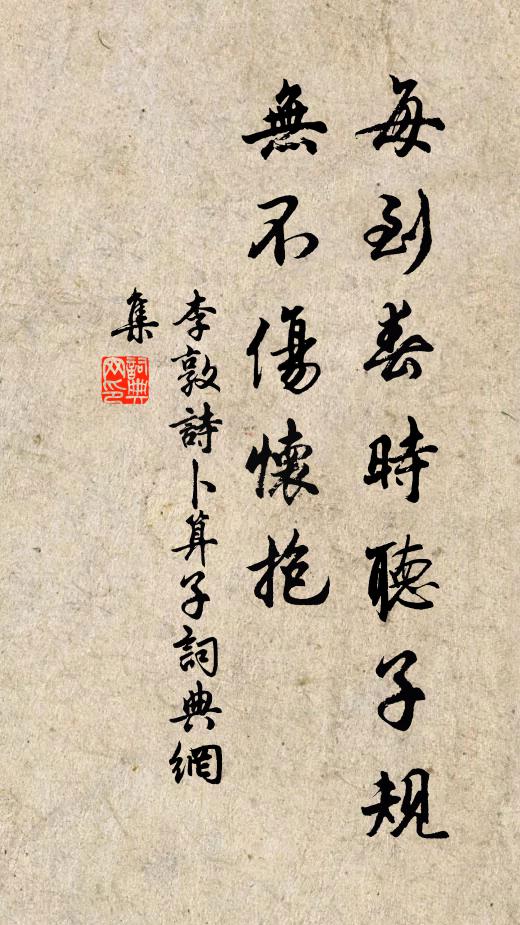 每到春時聽子規
無不傷懷抱
李敦詩卜算子詞典網
集
詞典網印